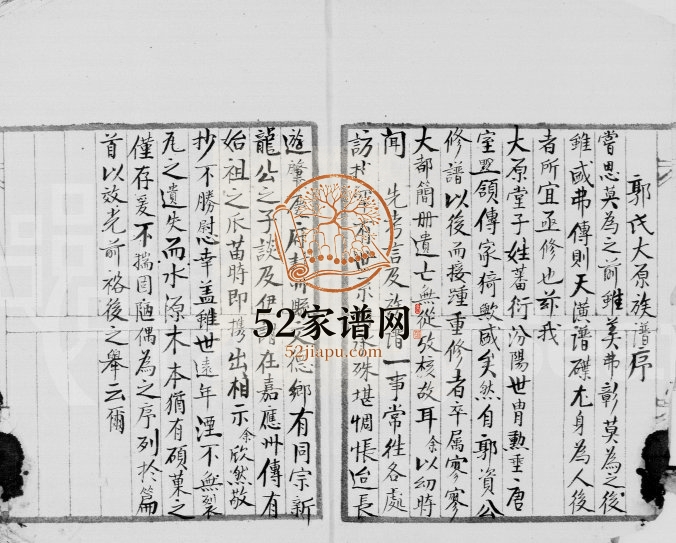 郭氏大原族譜序
嘗思莫為之前雖美弗彰莫為之後
雖盛弗傳則天潢譜牒尤身為人後
者所宜亟修也茲我
大原堂子姓蕃衍汾陽世冑勲垂唐
室盟領傳家猗歟盛矣然自郭資公
修譜以後而接踵重修者卒属寥寥
大都簡册遺亡無從攷核故耳余以幼時
聞先考言及族譜一事常往各處
訪 殊堪惆悵迨長
遊肇 府 鄉有同宗新
龍公之子談及伊 在嘉應州傳有
始祖之瓜苗時即携出相示余欣然敬
抄不勝慰幸盖雖世遠年湮不無裂
瓦之遺失而水源木本猶有碩菓之
僅存爰不揣固陋偶為之序列於篇
首以效光前裕後之舉云爾
52家谱网
52jiapu.com